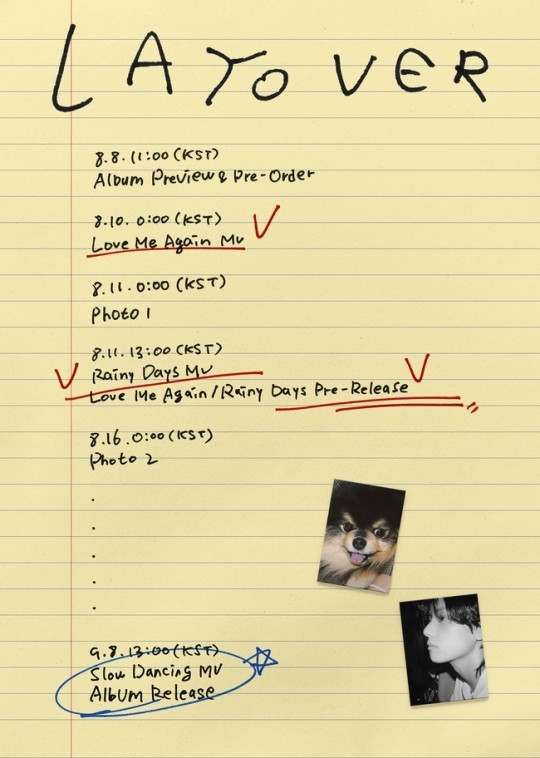 LAYOVER
8.8.11:00 (KST)
Album Preview & Pre-Order
8.10. 0:00 (KST)
Love Me Again MV
8.11.0:00 (KST)
Photo 1
8.11.13:00 (KST)
Rainy Days MV
Love Me Again/Rainy Days Pre-Release
8.16.0:00 (KST)
Photo 2
.
.
.
.
.
9.8.13:00 (KST)
Slow Dancing MV
Album Release